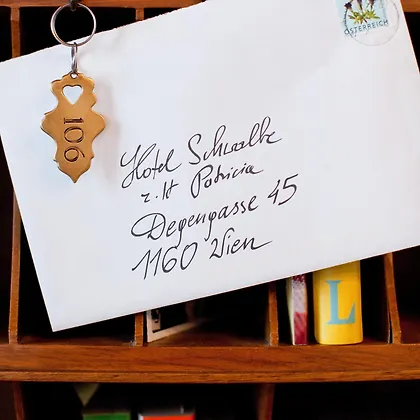 106
ÖSTERREICH
Hotel Schwalbe
z.H Patricia
Degengasse 45
1160 Wien
L